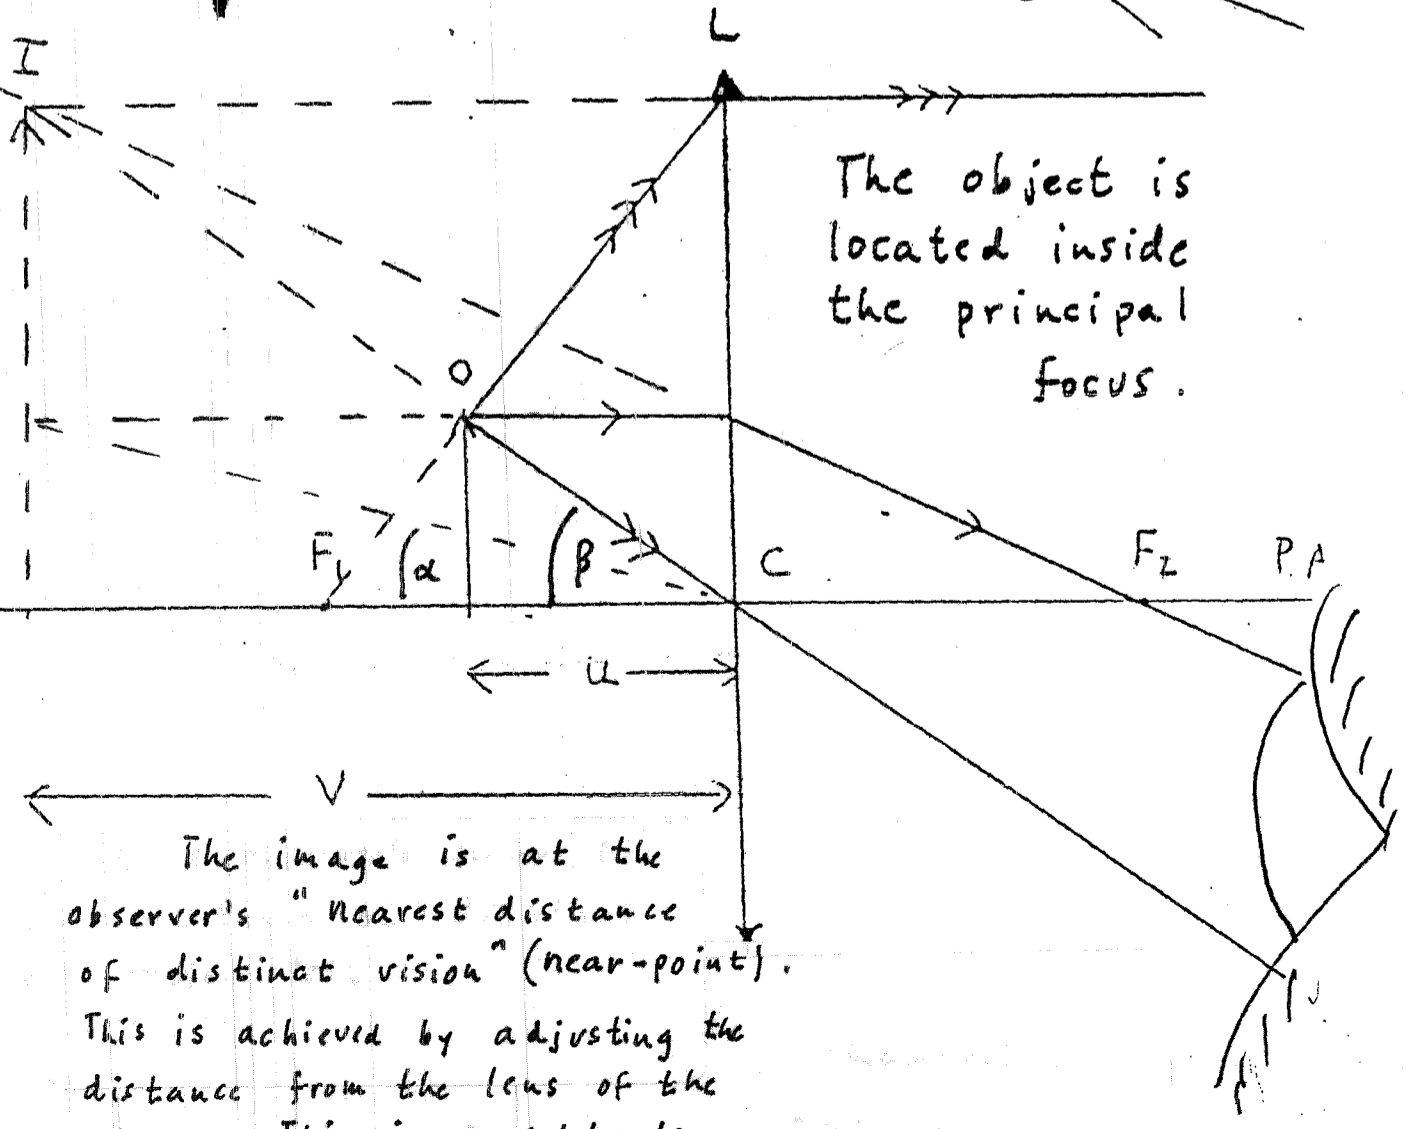 I
L
The object is
located inside
the principal
focus.
O
F1
α
β
C
F2
P.A
u
V
The image is at the
observer's "nearest distance
of distinct vision" (near-point).
This is achieved by adjusting the
distance from the lens of the